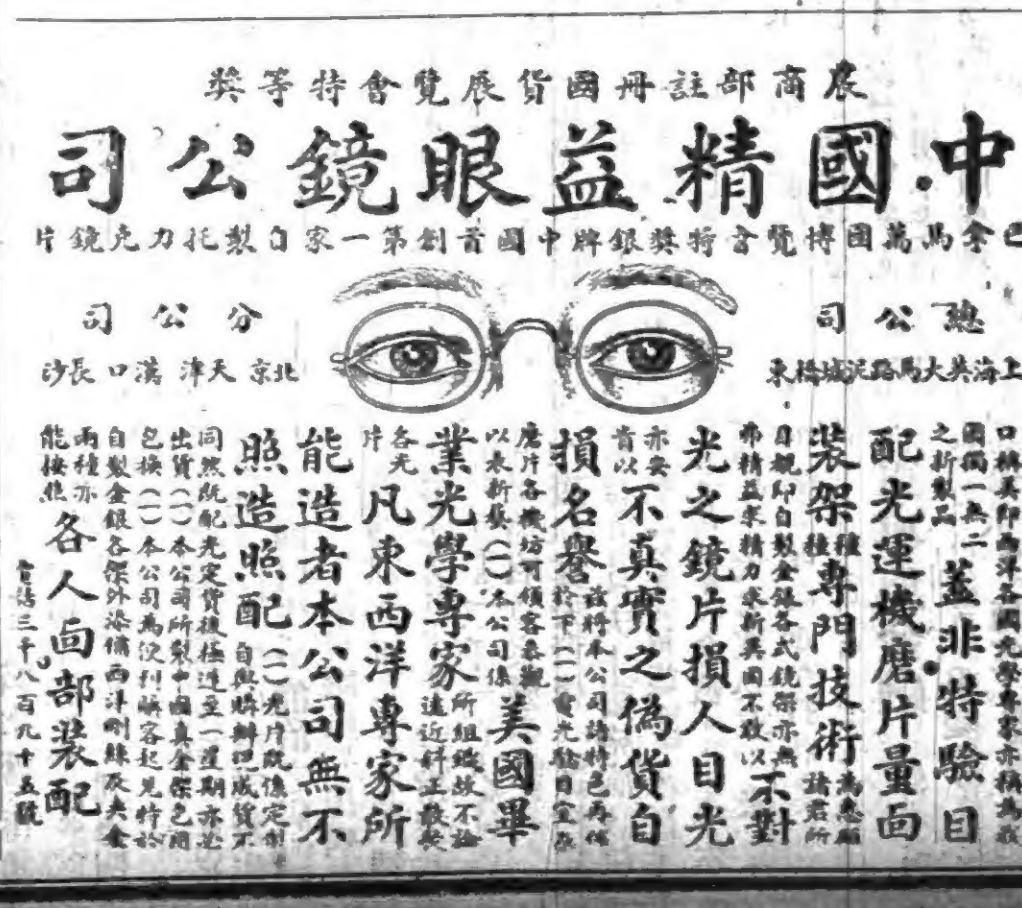 農商部註冊國貨展覽會特等獎
中國精益眼鏡公司
巴拿馬萬國博覽會特獎銀牌中國首創第一家自製托力克鏡片
總公司
上海英大馬路泥城橋東
分公司
北京 天津 漢口 長沙
西洋各國光學專家亦
國獨一無二
之新製品
蓋非特驗目
配光運機磨片量面
裝架種種專門技術
諸君所
目觀即自製金銀各式鏡架亦無
弗精益求精力求新異固不敢以
不對
光之鏡片損人目光
亦安
肯以
不真實之偽貨自
損名譽
茲將本公司諸特色再伸
於下(一)電光驗目室及
磨片各機坊可領客參觀
以表新發(一)本公司係
美國畢
業光學專家
所組織故不論
遠近斜正散
各光
片
凡東西洋專家所
能造者本公司無不
照造照配
(一)光片既係定製
自與購辦現成貨不
同然既配光定貨後極遲至一星期亦必
出貨(一)本公司所製中國真金架包用
包換(一)本公司為便利顧客起見特於
自製金銀各架外
兩種亦
能接
各人面部裝配
電話三千八百九十五號